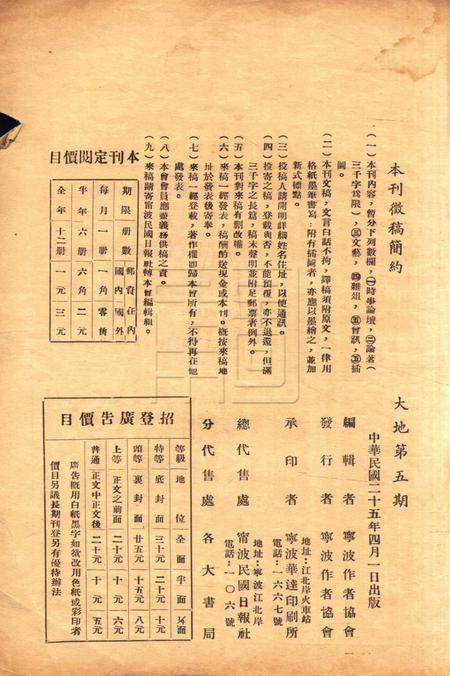 本刊徵稿簡約
(一)本刊內容，暫分下列數欄，㊀時事論壇，㊁論著(
三千字爲限)，㊂文藝，㊃雜俎，㊄會訊，㊅插
圖。
(二)本刊文稿，文言白話不拘，譯稿須附原文，一律用
格紙墨筆書寫，附有插圖者，亦應以墨繪之，並加
新式標點。
(三)投稿人請開明詳細姓名住址，以便通訊。
(四)投寄之稿，登載與否，不能預覆，亦不退還，但滿
三千字之長篇，稿末聲明並附足郵票者例外。
(五)本刊對來稿有刪改權。
(六)來稿一經登載，稿酬酌送現金或本刊。概按來稿地
址於發表後寄奉。
(七)來稿一經登載，著作權卽歸本會所有，不得再在他
處發表。
(八)本會會員應盡義務供稿之責。
(九)來稿請寄甯波民國日報社轉本會編輯組。
本刊定閱價目
期限 冊數 郵資在內 國內 國外
每月 一冊 一角 零售
半年 六冊 六角 二元
全年 十二冊 一元 三元
大地第五期
中華民國二十五年四月一日出版
編輯者 寧波作者協會
發行者 寧波作者協會
承印者 寧波華達印刷所
地址：江北岸火車站
電話：一六六七號
總代售處 甯波民國日報社
地址：寧波江北岸
電話：一〇六號
分代售處 各大書局
招登廣告價目
等級 地位 全面 半面 ¼面
特等 底封面 三十元 二十元 十元
頭等 裏封面 廿五元 十五元 八元
上等 正文之前面 二十元 十元 六元
普通 正文中正文後 二十元 十元 五元
廣告概用白紙黑字如欲改用色紙或彩印者
價目另議長期刊登另有優待辦法